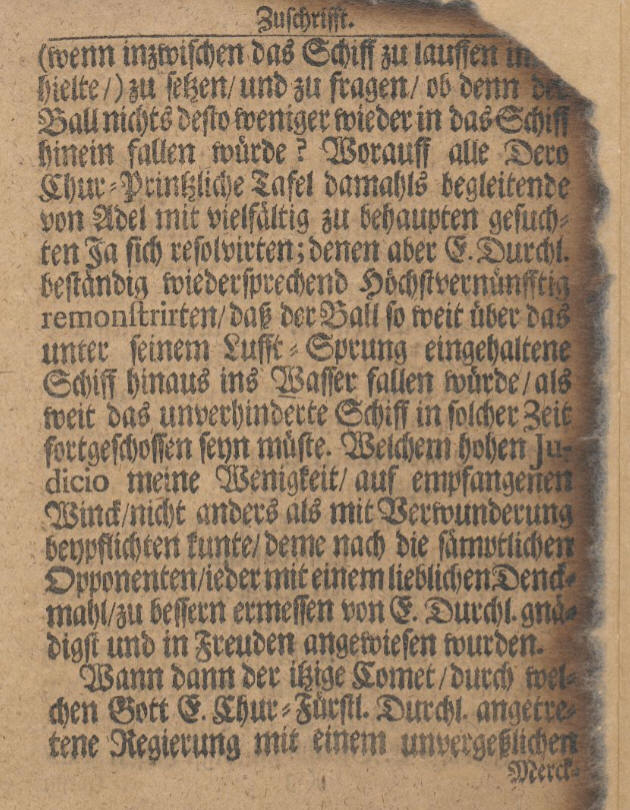 Zuschrifft.
(wenn inzwischen das Schiff zu lauffen
hielte/) zu setzen/ und zu fragen/ ob denn
Ball nichts desto weniger wieder in das Schiff
hinein fallen würde? Worauff alle Dero
Chur-Printzliche Tafel damahls begleitende
von Adel mit vielfältig zu behaupten gesuch-
ten Ja sich resolvirten; denen aber E. Durchl.
beständig wiedersprechend Höchstvernünfftig
remonstrirten/ daß der Ball so weit über das
unter seinem Lufft-Sprung eingehaltene
Schiff hinaus ins Wasser fallen würde/ als
weit das unverhinderte Schiff in solcher Zeit
fortgeschossen seyn müste. Welchem hohen Ju-
dicio meine Wenigkeit/ auf empfangenen
Winck/ nicht anders als mit Verwunderung
beypflichten kunte/ deme nach die sämptlichen
Opponenten/ ieder mit einem lieblichen Denck-
mahl/ zu bessern ermessen von E. Durchl. gnä-
digst und in Freuden angewiesen wurden.
Wann dann der itzige Comet/ durch wel-
chen Gott E. Chur-Fürstl. Durchl. angetre-
tene Regierung mit einem unvergeßlichen
Merck-